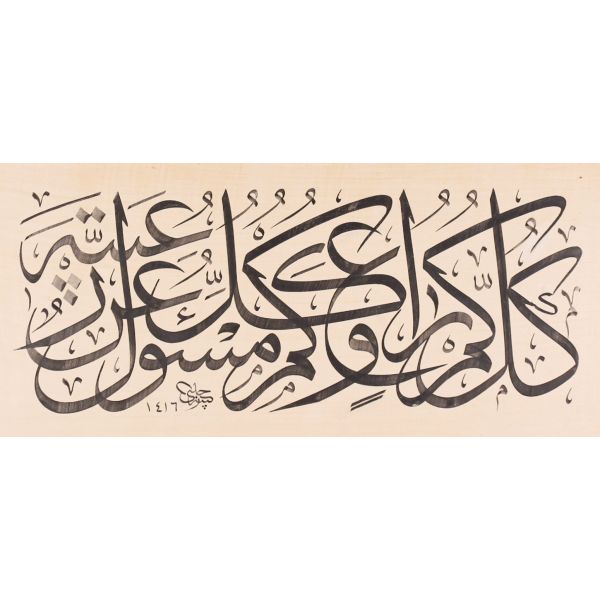 كُلُّكُمْ رَاعٍ وَكُلُّكُمْ مَسْئُولٌ عَنْ رَعِيَّتِهِ
١٤١٦